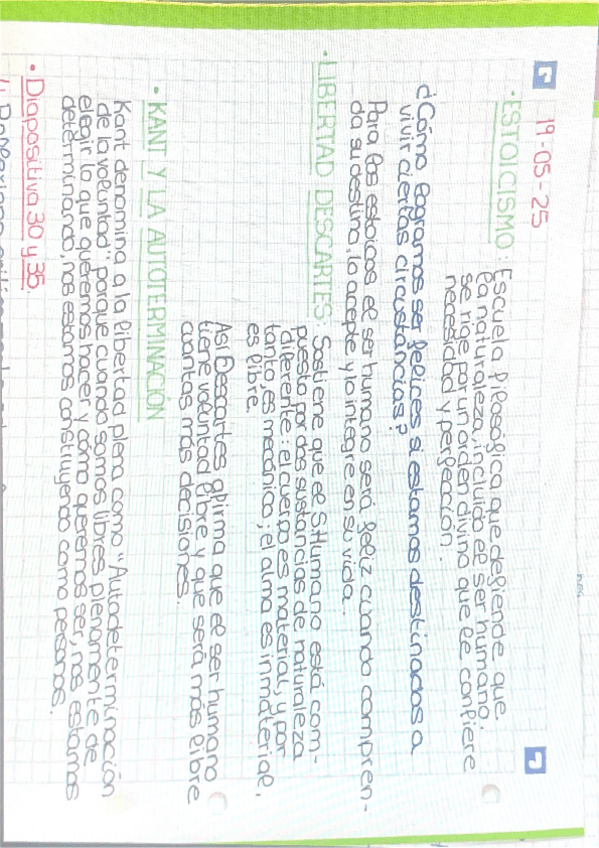 19-05-25
· ESTOICISMO: Escuela filosófica que defiende que
la naturaleza, incluido el ser humano,
se rige por un orden divino que le confiere
necesidad y perfección.
¿Cómo logramos ser felices si estamos destinados a
vivir ciertas circustáncias?
Para los estoicos el ser humano será feliz cuando compren-
da su destino, lo acepte y lo integre en su vida.
· LIBERTAD DESCARTES: Sostiene que el S.Humano está com-
puesto por dos sustancias de naturaleza
diferente: el cuerpo es material, y por
tanto, es mecánico; el alma es inmaterial,
es libre.
Así Descartes afirma que el ser humano
tiene voluntad libre y que será más libre
cuantas más decisiones.
· KANT Y LA AUTOTERMINACIÓN
Kant denomina a la libertad plena como "Autodeterminación
de la voluntad" porque cuando somos libres plenamente de
elegir lo que queremos hacer y cómo queremos ser, nos estamos
determinando, nos estamos construyendo como personas.
· Diapositiva 30 y 35.